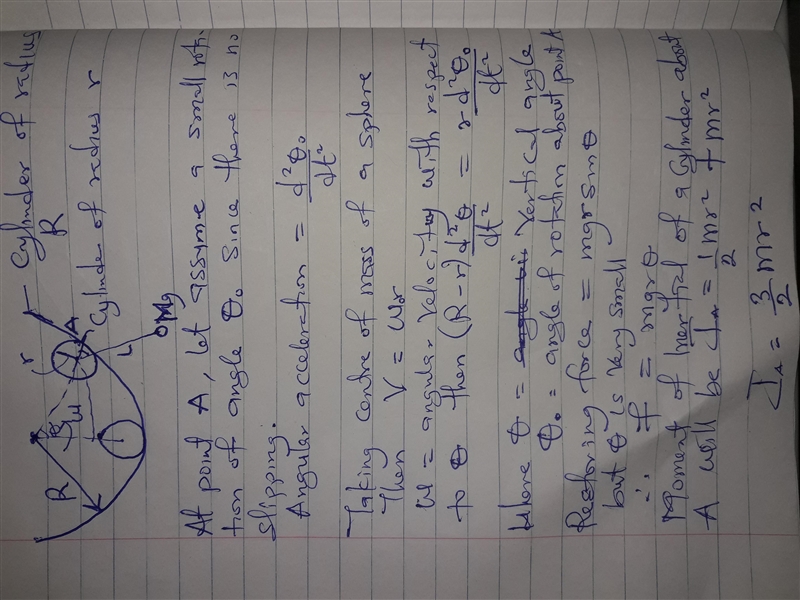 r
Cylinder of radius
R
R
θ
ω
A
Cylinder of radius r
L
Mg
At point A, let assyme a small rota-
tion of angle θo since there is no
slipping.
Angular acceleration = d²θo/dt²
Taking centre of mass of a sphere
Then V = ωr
ω = angular velocity with respect
to θ then (R-r) d²θ/dt² = r d²θo/dt²
Where θ = Vertical angle
θo = angle of rotation about point A
Restoring force = mgr sinθ
but θ is very small
∴ F = mgrθ
Moment of inertial of a cylinder about
A will be I_A = 1/2 mr² + mr²
I_A = 3/2 mr²